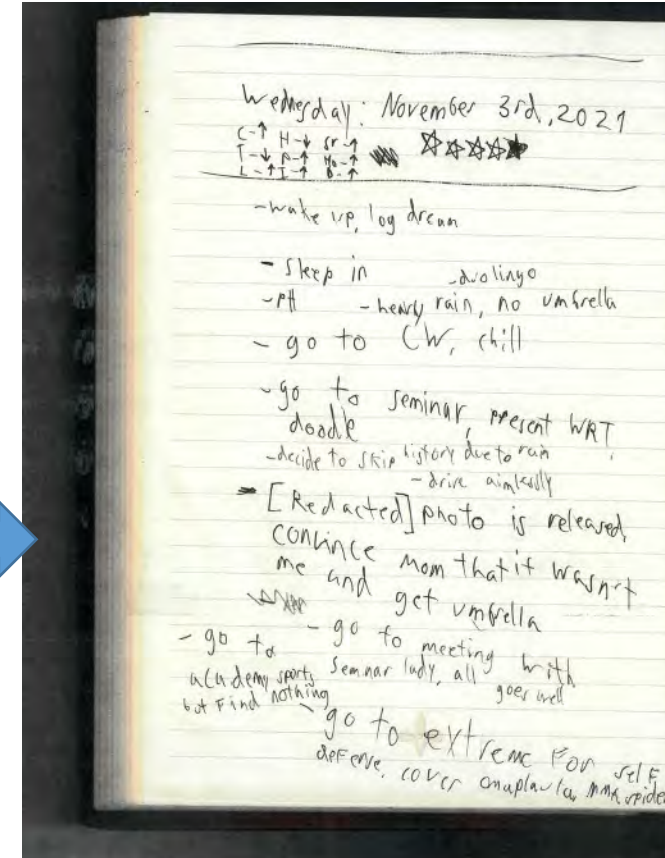 Wednesday: November 3rd, 2021
C-↑ H-↓ Sr-↑
T-↓ A-↑ Mo-↑
L-↑ I-↑ B-↑
-wake up, log dream
- Sleep in -duolingo
-PH -heavy rain, no umbrella
- go to CW, chill
- go to seminar, present WRT,
doodle
-decide to skip history due to rain
- drive aimlessly
- [Redacted] photo is released,
convince mom that it wasn't
me and get umbrella
- go to - go to meeting with
academy sports seminar lady, all goes well
but find nothing
- go to extreme for self
defense, cover MMA, spider